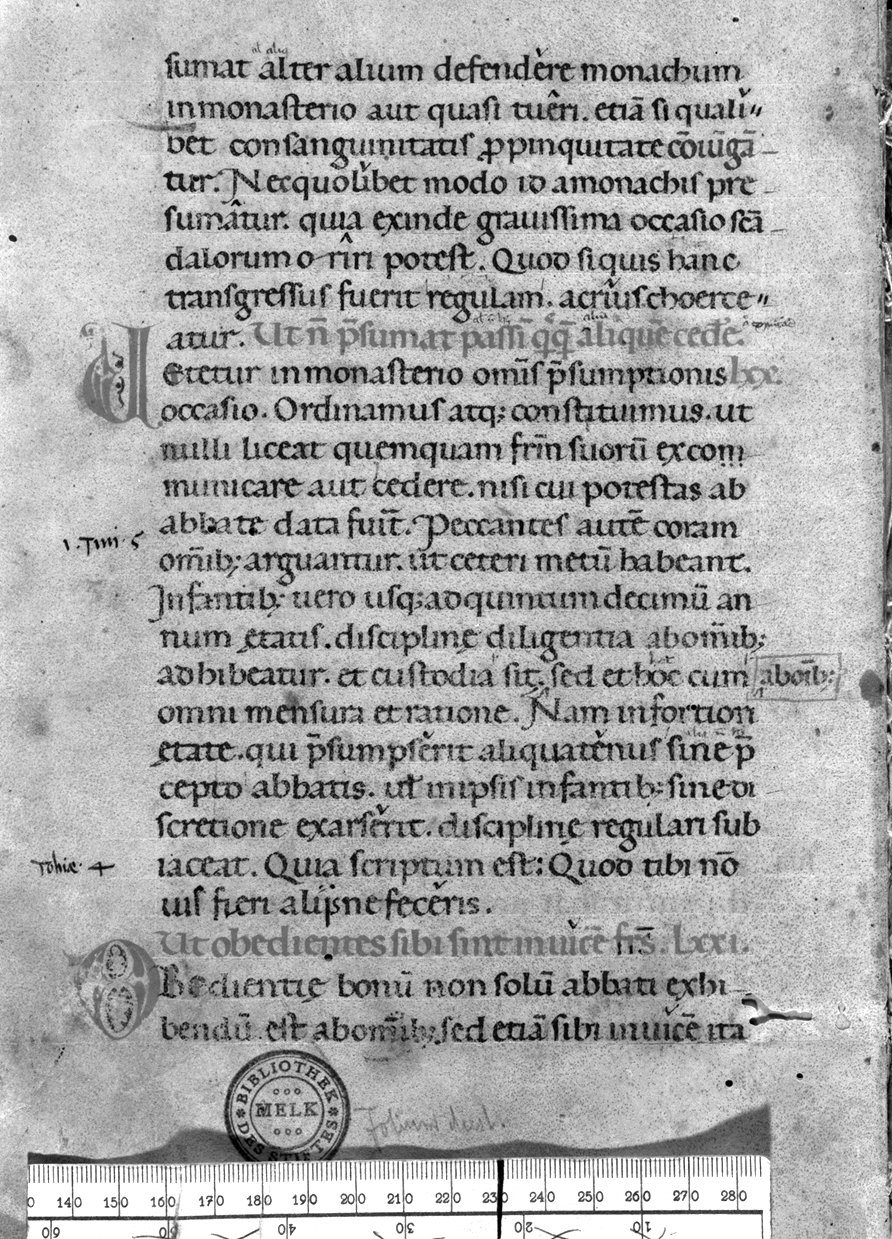 sumat alter alium defendere monachum
inmonasterio aut quasi tueri. etiā si quali〃
bet consanguinitatis ꝓpinquitate cōiūgā
tur. Necquolibet modo id amonachis pre
sumatur. quia exinde grauissima occasio scā
dalorum oriri potest. Quod siquis hanc
transgressus fuerit regulam. acrius choerce〃
atur. Ut n̄ p̄sumat passī q̄q̄ aliquē cedēre.
Uetetur inmonasterio om̄is p̄sumptionis lxx.
occasio. Ordinamus atq; constituimus. ut
nulli liceat quemquam fr̄m suorū excom
municare aut cedere. nisi cui potestas ab
abbate data fuit̄. Peccantes autē coram
1. Tim. 5
om̄ib; arguantur. ut ceteri metū habeant.
Infantib; uero usq; adquintumdecimū an
num ętatis. disciplinę diligentia abom̄ib;
adhibeatur. et custodia sit. sed et hoc cum aboīb;
omni mensura et ratione. Nam infortiori
ętate. qui p̄sumpserit aliquatenus sine p̄
cepto abbatis. ul̄ inipsis infantib; sinedi
scretione exarserit. disciplinę regulari sub
iaceat. Quia scriptum est: Quod tibi nō
Tobie. 4
uis fieri alii ne feceris.
Ut obedientes sibi sint inuicē fr̄s. Lxxi.
OBedientię bonū non solū abbati exhi
bendū est abom̄ib; sed etiā sibi inuicē ita
BIBLIOTHEK DES STIFTES MELK
140 150 160 170 180 190 200 210 220 230 240 250 260 270 280